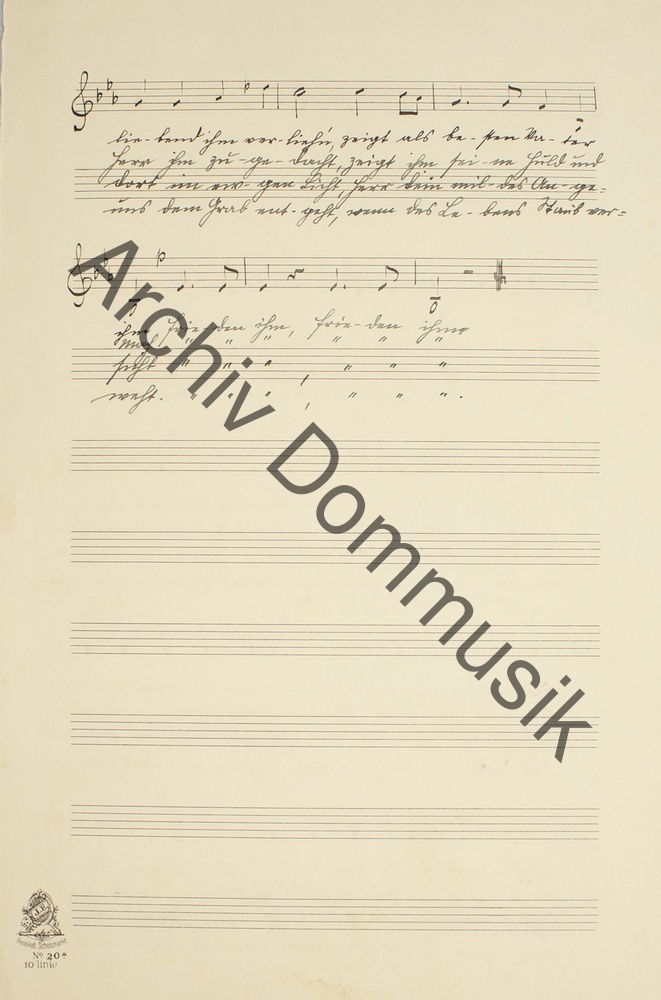 lie-bend ihm ver-lieh'n, zeigt als be-sten Va-ter
Herr ihn zu-ge-dacht, zeigt ihm sei-ne Huld und
dort im ew-gen Licht, Herr dein mil-des An-ge-
uns dem Grab ent-geht, wenn des Le-bens Staub ver-
ihm Frie-den ihm, Frie-den ihm
Macht " " " " " "
sicht " " " , " " "
weht. " " " , " " " .
Archiv Dommusik
J.E.
Protokoll. Schutzmarke
No 20a
10 linig